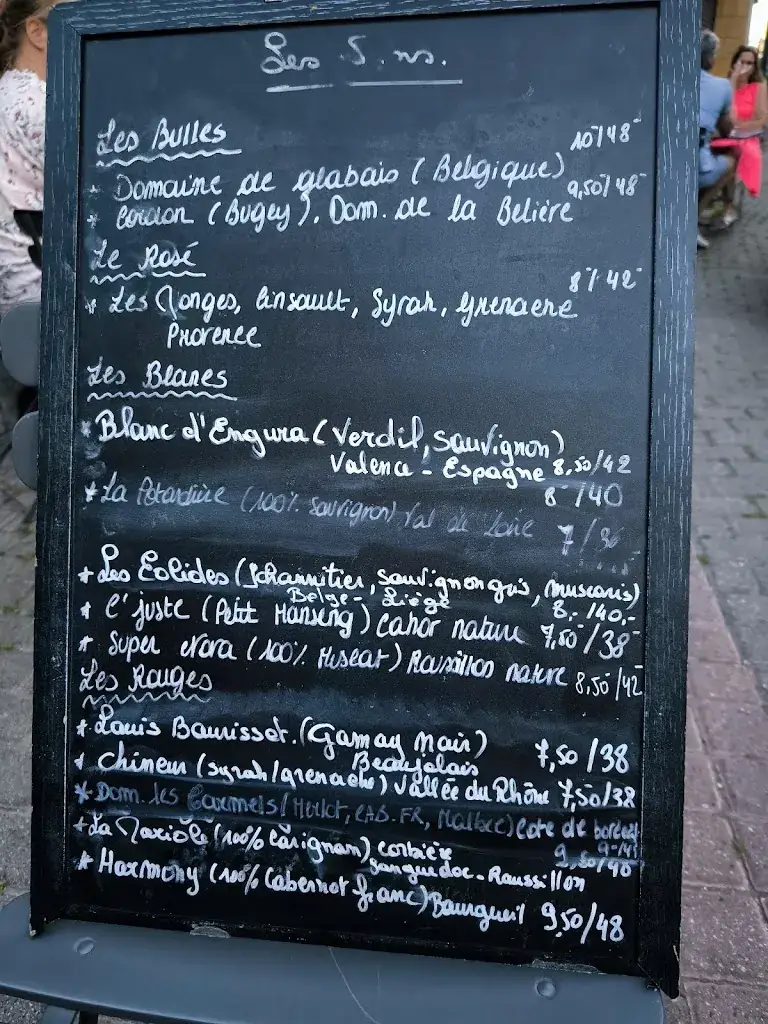 Les
Les Bulles
10-/48-
* Domaine de glabais (Belgique)
9,50/48-
* Cerdon (Bugey). Dom. de la Belière
Le Rosé
8-/42-
* Les Songes, Cinsault, Syrah, Grenache
Provence
Les Blancs
* Blanc d'Engura (Verdil, sauvignon)
Valence - Espagne 8,50/42
8-/40
* La (100% sauvignon) Val de Loire
7/36
* Les Eolides (Johannitier, sauvignon gris, muscaris)
Belge - Liège 8,-/40,-
* L'juste (Petit Manseng) Cahor nature 7,50/38
* Super Nova (100% Muscat) Roussillon nature 8,50/42
Les Rouges
* Louis Baurisset. (Gamay Noir) 7,50/38
Beaujolais
* Chineur (syrah/grenache) Vallée du Rhône 7,50/38
* Dom. les Carmels (Merlot, CAB. FR, Malbec) Cote de bordeaux
* La Mariole (100% Carignan) Corbière 9,50/48
Languedoc - Roussillon
* Harmony (100% Cabernet franc) Bourgueil 9,50/48